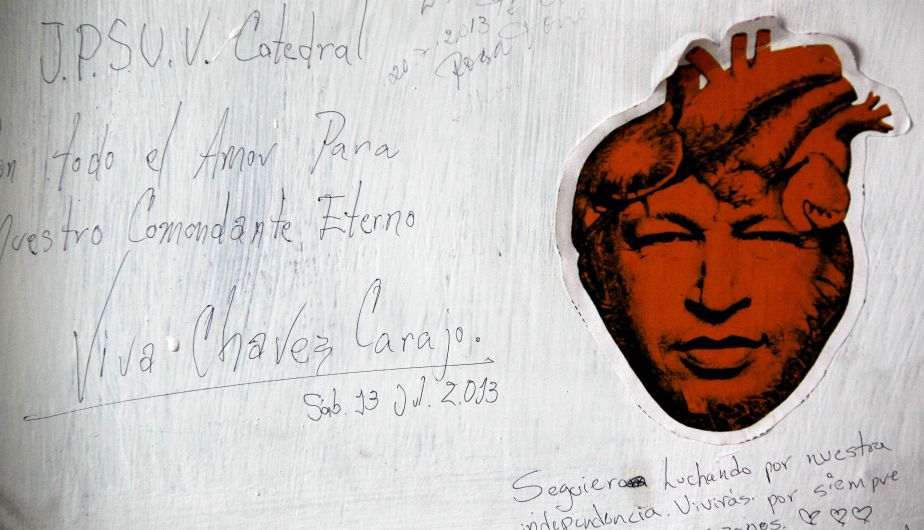 J.P.S.U.V. Catedral
2013
Rosa
todo el Amor Para
nuestro Comandante Eterno
Viva Chavez Carajo.
Sáb. 13 Jul. 2.013
Seguiero Luchando por nuestra
independencia. Vivirás por siempre